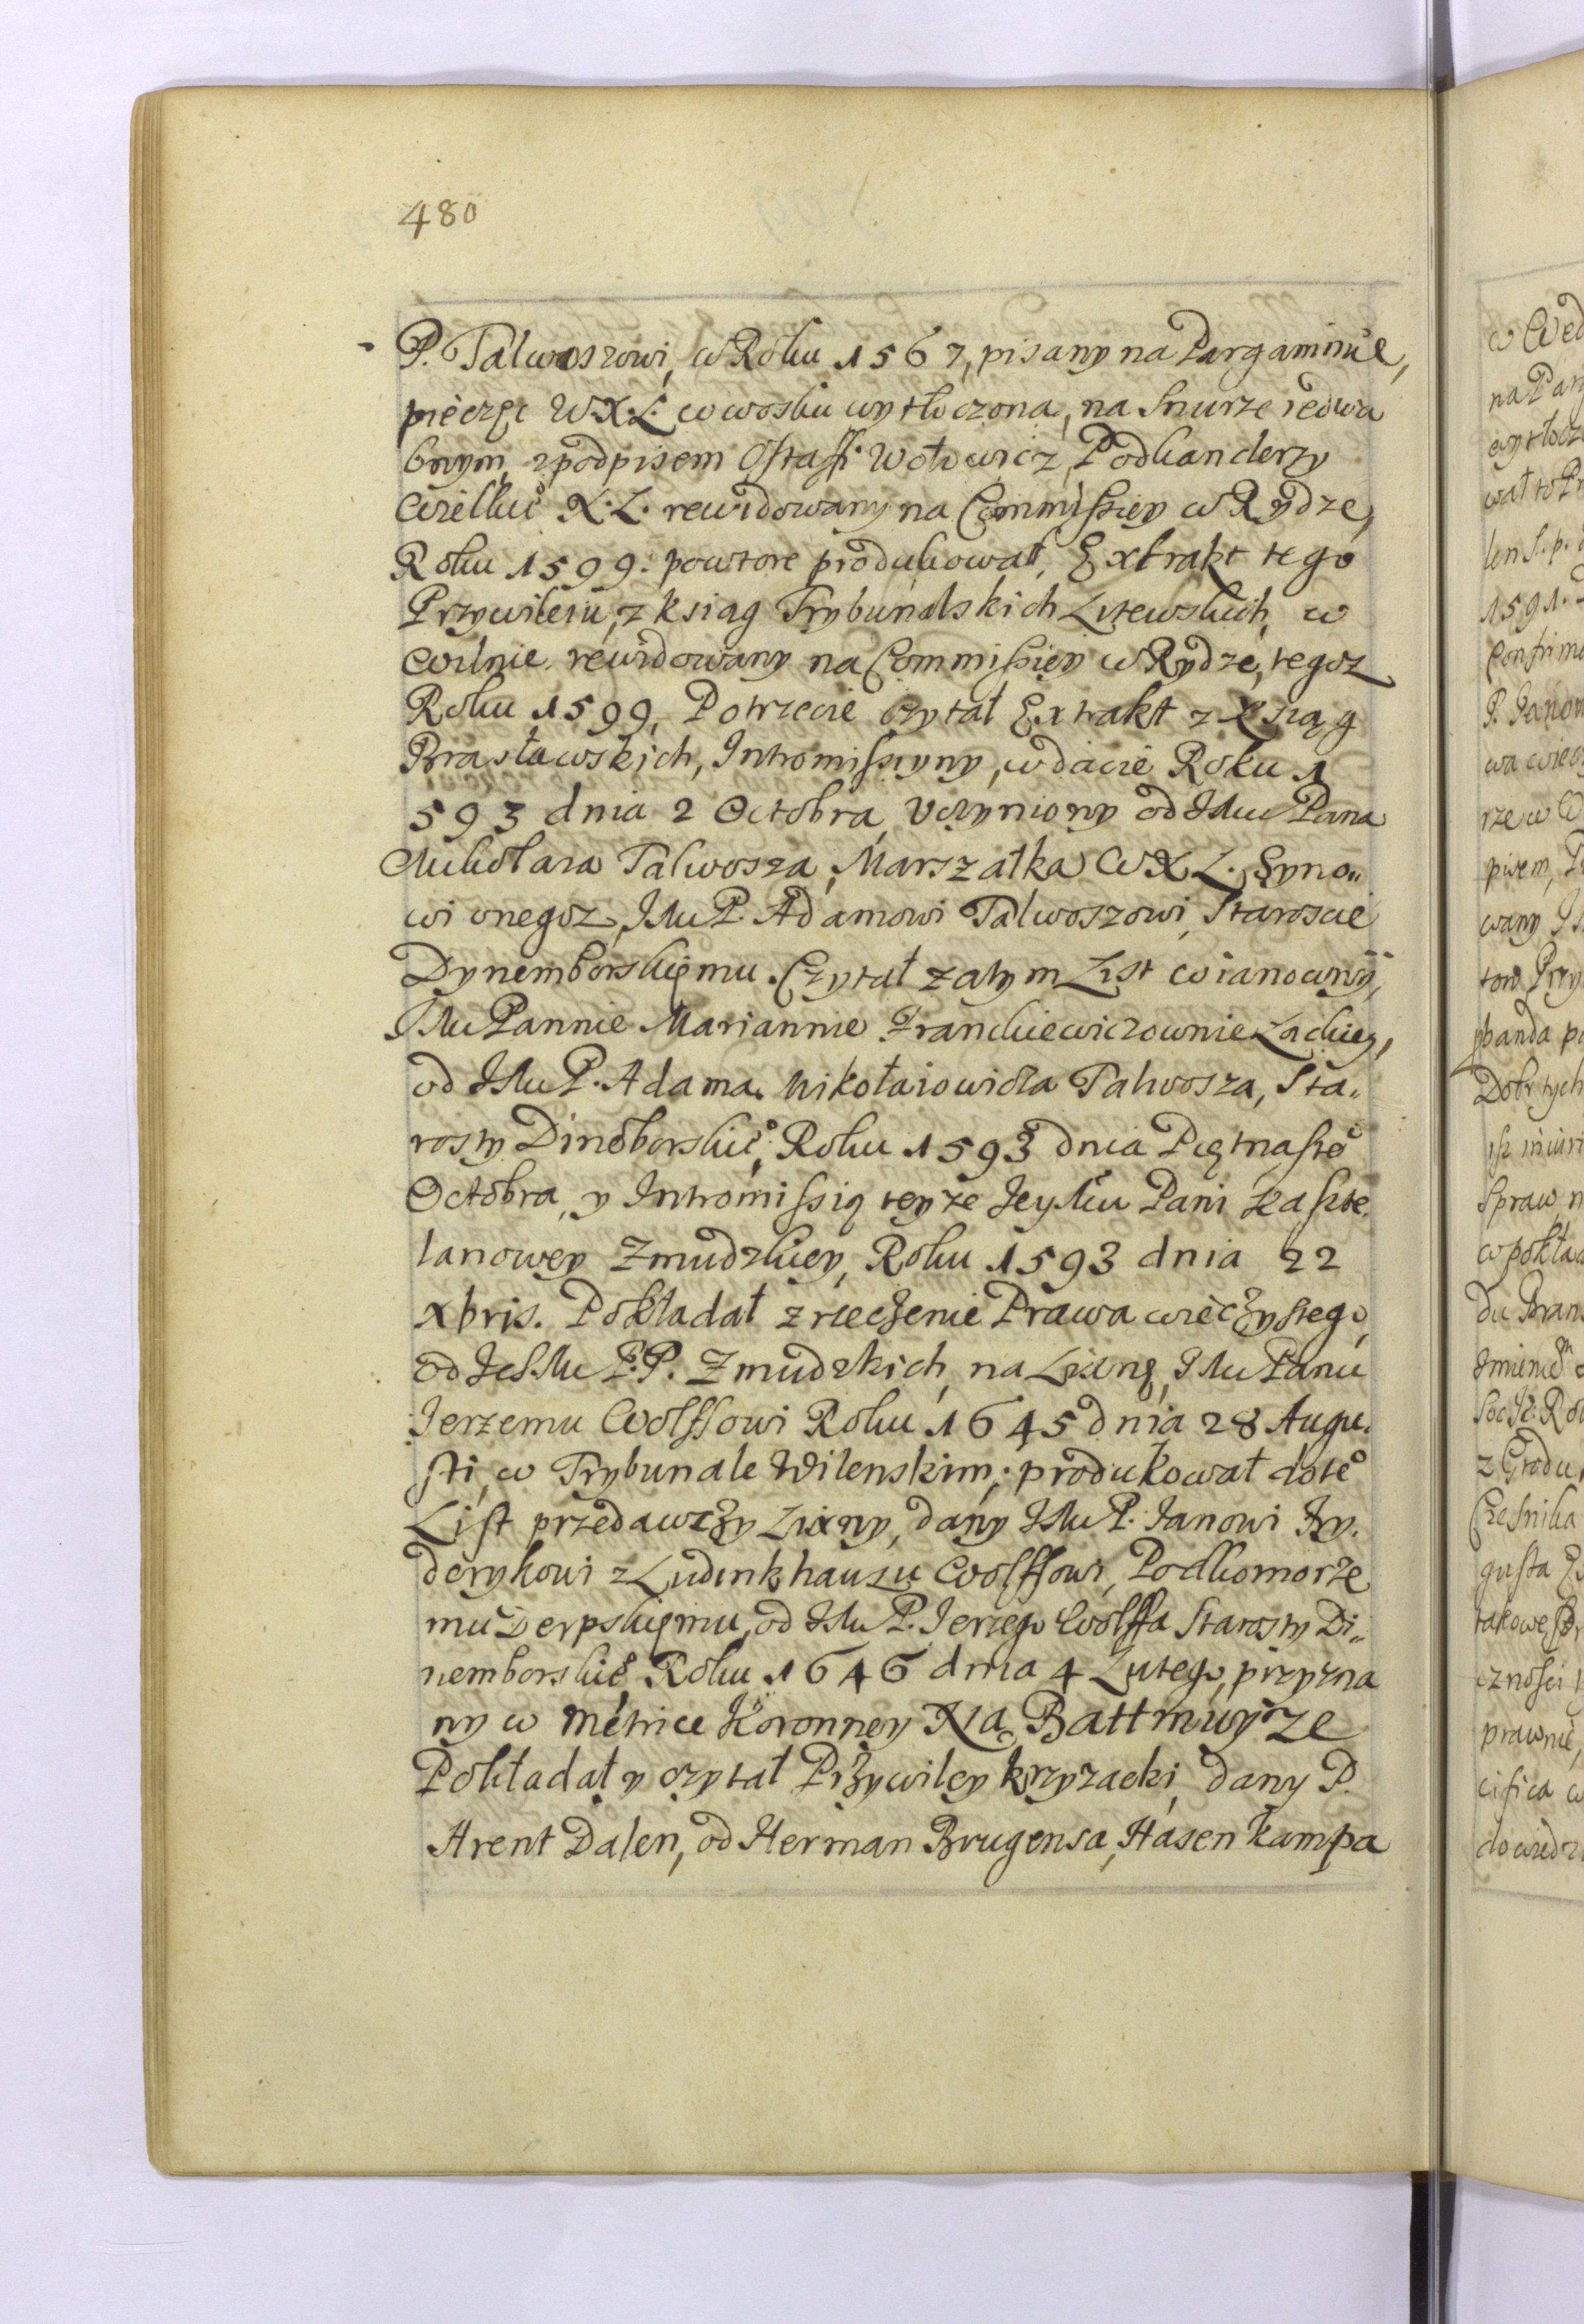 480
P. Talwoszowi, w Roku 1567, pisany na Pargaminie,
pieczęc W.X.L. w wosku wytłoczona, na snurze iedwa
bnym, z podpisem Ostafi Wołowicz, Podkanclerzy
Wielki° X.L. rewidowany na Commissiey w Rydze,
Roku 1599. powtore produkował, Extrakt tego
Przywileiu, z ksiąg Trybunalskich Litewskich, w
Wilnie rewidowany na Commissiey w Rydze, tegoz
Roku 1599, Potrzecie czytał Extrakt z Xsiąg
Brasławskich, Intromissyny, w dacie Roku 1
593 dnia 2 Octobra, Uczyniony od JMu Pana
Mikołaia Talwosza, Marszałka WXL. Syno„
wi onegoz, JMu P. Adamowi Talwoszowi, Staroscie
Dynemborskiemu. Czytał zatym List wianowny,
JMu Pannie Mariannie Franckiewiczownie Lackiey,
od JMu P. Adama Mikołaiowicza Talwosza, Sta„
rosty Dinoborski°, Roku 1593 dnia Piętnaste°
Octobra, y Intromissią teyze JeyMu Pani Kaszte„
lanowey Zmudzkiey, Roku 1593 dnia 22
xbris. Pokładał zrzeczenie Prawa wieczystego,
od Ich Mu P.P. Zmudzkich, na Lixnę, JMu Panu
Jerzemu Wolffowi Roku 1645 dnia 28 Augu„
sti, w Trybunale Wilenskim; produkował do te°
List przedawczy Lixny, dany JMu P. Janowi Fry„
derykowi z Ludinkhauzu Wolffowi, Podkomorze
mu Derpskiemu, od JMu P. Jerzego Wolffa Starosty Di„
nemborski°, Roku 1646 dnia 4 Lutego, przyzna
ny w Metrice Koronney Na Battmuyze
Pokładał y czytał Przywiley krzyzacki, dany P.
Arent Dalen, od Herman Brugensa, Hasen kampa